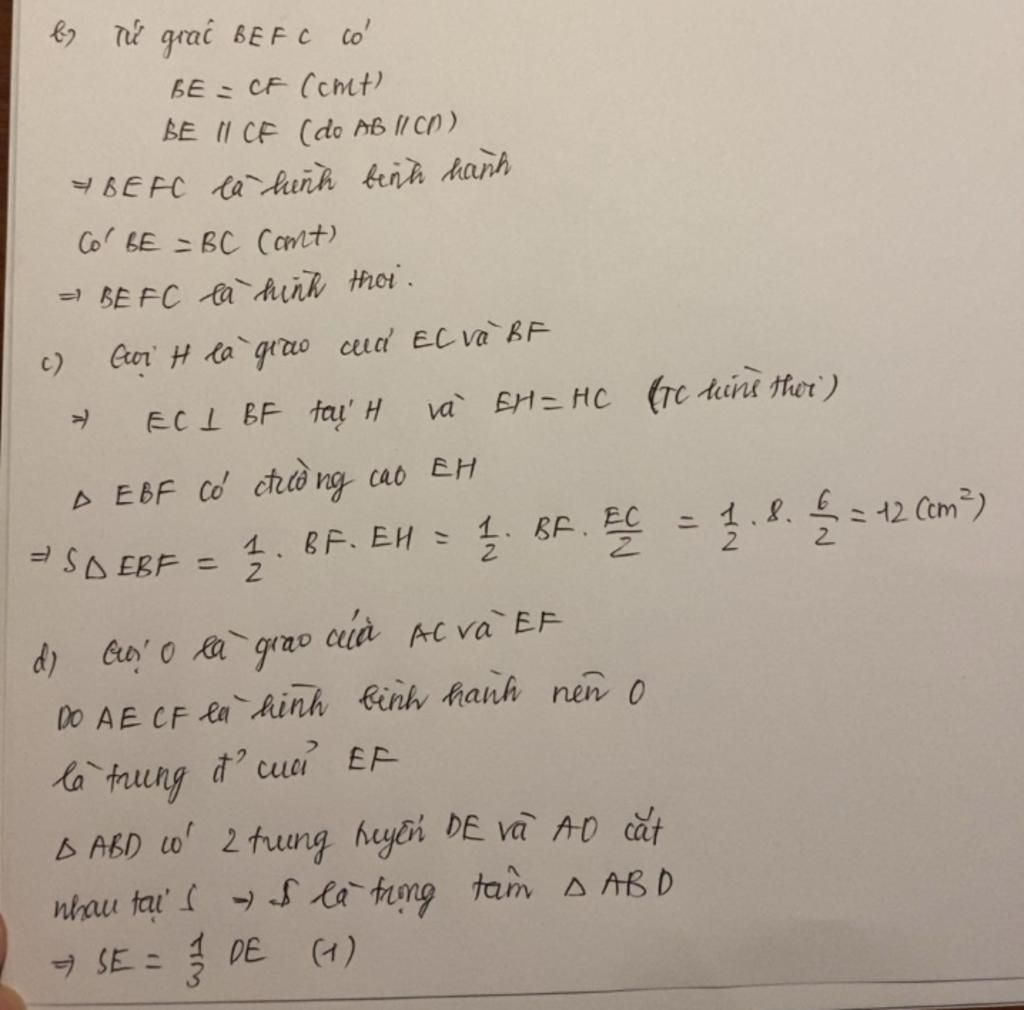 b) Tứ giác BEFC có
BE = CF (cmt)
BE // CF (do AB // CD)
⇒ BEFC là hình bình hành
Có BE = BC (cmt)
⇒ BEFC là hình thoi.
c) Gọi H là giao của EC và BF
⇒ EC ⊥ BF tại H và EH = HC (TC hình thoi)
Δ EBF có đường cao EH
⇒ SΔEBF = 1/2 . BF. EH = 1/2 . BF . EC/2 = 1/2 . 8 . 6/2 = 12 (cm²)
d) Gọi O là giao của AC và EF
Do AECF là hình bình hành nên O
là trung đ' của EF
Δ ABD có 2 trung tuyến DE và AO cắt
nhau tại S ⇒ S là trọng tâm Δ ABD
⇒ SE = 1/3 DE (1)